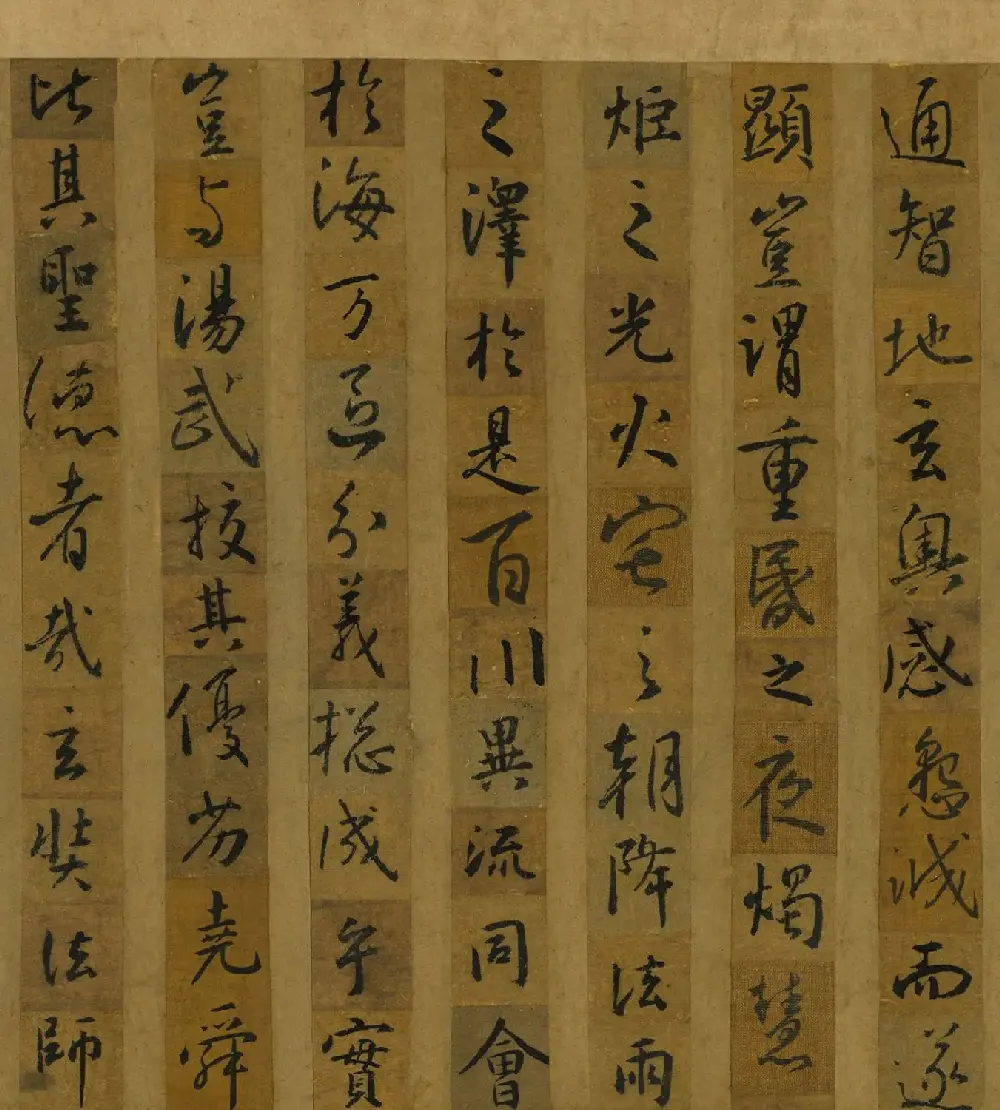 通智地玄奧感懇誠而遂
顯豈謂重昏之夜燭慧
炬之光火宅之朝降法雨
之澤於是百川異流同會
於海萬區分義揔成乎實
豈与湯武挍其優劣堯舜
比其聖德者哉玄奘法師